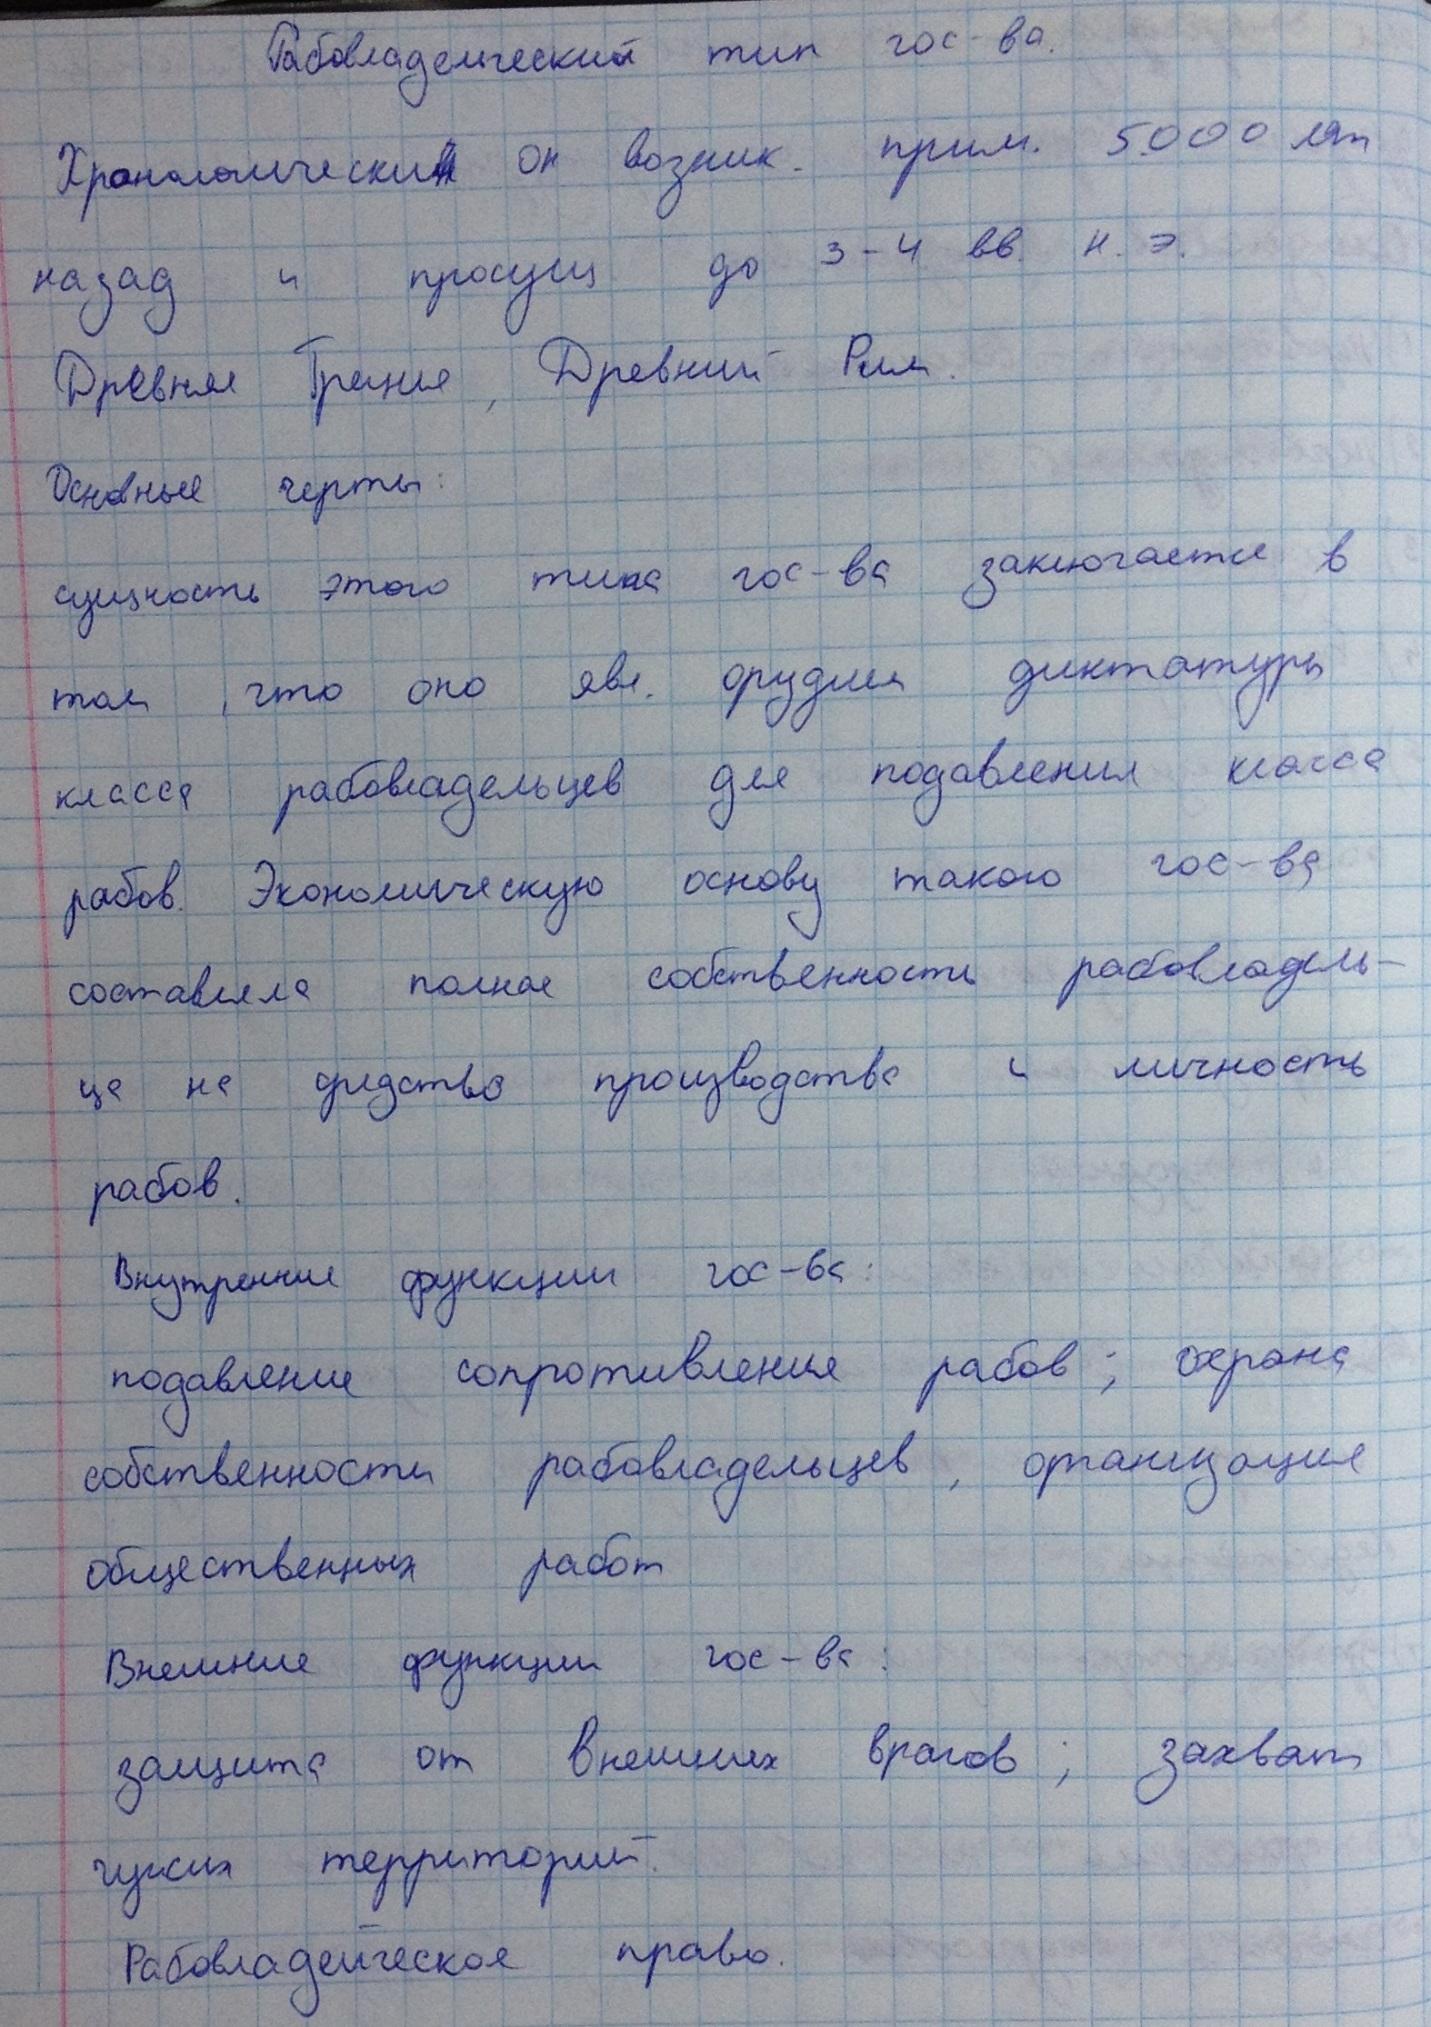 Рабовладельческий тип гос-ва.
Хронологически он возник. прим. 5000 лет
назад и просущ до 3-4 вв. н.э.
Древняя Греция, Древний Рим.
Основные черты:
сущность этого типа гос-ва заключается в
том, что оно явл. орудием диктатуры
класса рабовладельцев для подавления класса
рабов. Экономическую основу такого гос-ва
составляла полная собственность рабовладель-
ца на средства производства и личность
рабов.
Внутренние функции гос-ва:
подавление сопротивления рабов; охрана
собственности рабовладельцев, организация
общественных работ
Внешние функции гос-ва:
защита от внешних врагов; захват
чужих территорий.
Рабовладельческое право.